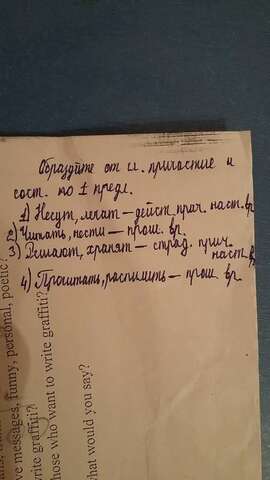 Образуйте от гл. причастие и
сост. по 1 предл.
1) Несут, лежат — дейст. прич. наст. вр
2) Читать, нести — прош. вр.
3) Решают, хранят — страд. прич.
наст. вр
4) Прочитать, распилить — прош. вр.
ve messages, funny, personal, poetic?
write graffiti?
hose who want to write graffiti?
hat would you say?